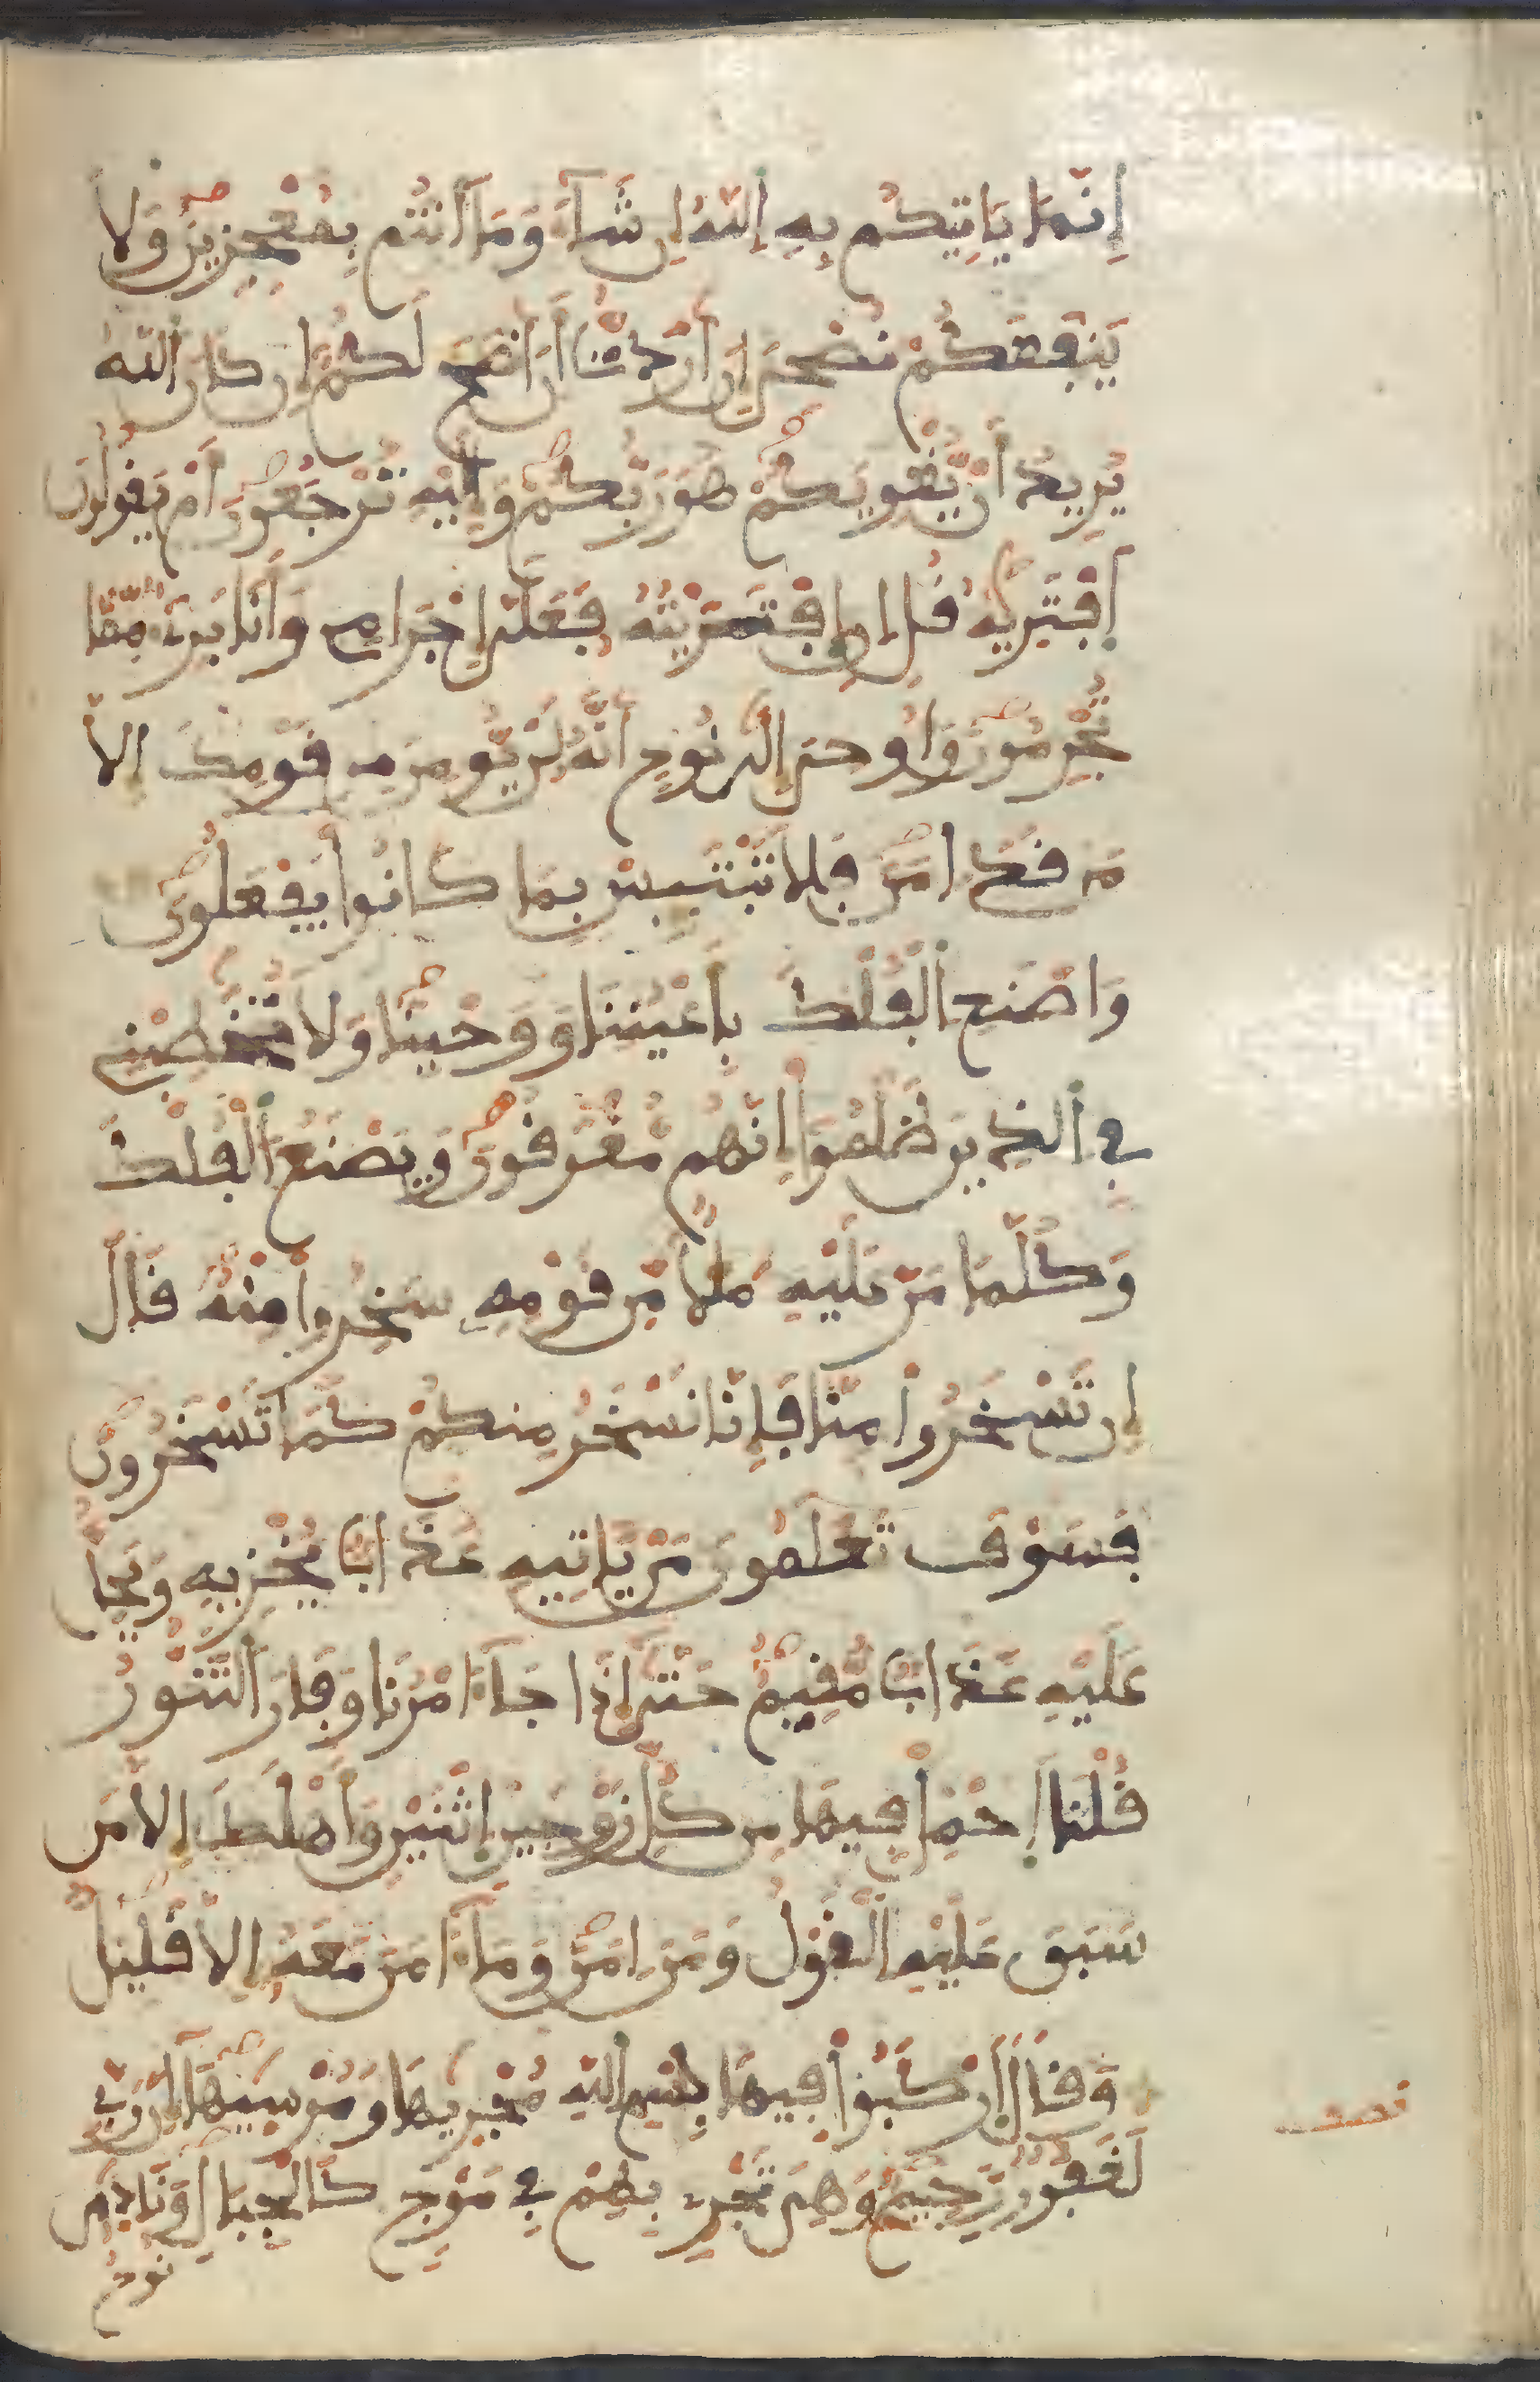 إِنَّمَا يَاتِيكُم بِهِ اِللَّهُ إِن شَآءَ وَمَآ أَنتُم بِمُعْجِزِينَ وَلَا
يَنفَعُكُمْ نُصْحِيَ إِنْ أَرَدتُّ أَنْ أَنصَحَ لَكُمْ إِن كَانَ اَللَّهُ
يُرِيدُ أَنْ يُّغْوِيَكُمْ هُوَ رَبُّكُمْ وَإِلَيْهِ تُرْجَعُونَ أَمْ يَقُولُونَ
اَفْتَرِيهُ قُلِ إِنِ اِفْتَرَيْتُهُ فَعَلَىَّ إِجْرَامِي وَأَنَا بَرِيءٌ مِّمَّا
تُجْرِمُونَ وَأُوحِيَ إِلَى نُوحٍ أَنَّهُ لَنْ يُّومِنَ مِن قَوْمِكَ إِلَّا
مَن قَدَ اٰمَنَ فَلَا تَبْتَئِسْ بِمَا كَانُوا يَفْعَلُونَ
وَاصْنَعِ اِلْفُلْكَ بِأَعْيُنِنَا وَوَحْيِنَا وَلَا تُخَٰطِبْنِي
فِي اِلذِينَ ظَلَمُوا إِنَّهُم مُّغْرَقُونَ وَيَصْنَعُ اُلْفُلْكَ
وَكُلَّمَا مَرَّ عَلَيْهِ مَلَأٌ مِّن قَوْمِهِ سَخِرُوا مِنْهُ قَالَ
إِن تَسْخَرُوا مِنَّا فَإِنَّا نَسْخَرُ مِنكُمْ كَمَا تَسْخَرُونَ
فَسَوْفَ تَعْلَمُونَ مَنْ يَّاتِيهِ عَذَابٌ يُخْزِيهِ وَيَحِلُّ
عَلَيْهِ عَذَابٌ مُّقِيمٌ حَتَّىٰ إِذَا جَآءَ امْرُنَا وَفَارَ اَلتَّنُّورُ
قُلْنَا اَحْمِلْ فِيهَا مِن كُلِّ زَوْجَيْنِ اِثْنَيْنِ وَأَهْلَكَ إِلَّا مَن
سَبَقَ عَلَيْهِ اِلْقَوْلُ وَمَنَ اٰمَنَ وَمَآ ءَامَنَ مَعَهُ إِلَّا قَلِيلٌ
وَقَالَ اَرْكَبُوا فِيهَا بِسْمِ اِللَّهِ مُجْرَيٰهَا وَمُرْسَيٰهَآ إِنَّ رَبِّي
لَغَفُورٌ رَّحِيمٌ وَهِيَ تَجْرِي بِهِمْ فِي مَوْجٍ كَالْجِبَالِ وَنَادَىٰ
نوح
نصف